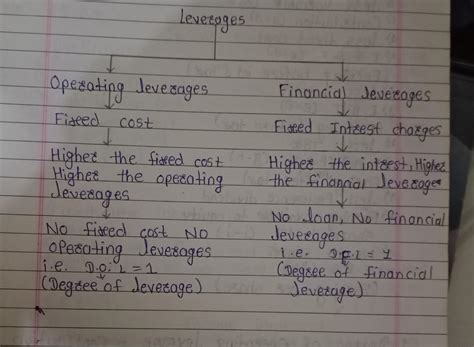 Leverages
Operating leverages
Fixed cost
Higher the fixed cost
Higher the operating
leverages
No fixed cost No
operating leverages
i.e. D.O.L = 1
(Degree of leverage)
Financial leverages
Fixed Intrest charges
Higher the intrest, Higher
the financial leverages
No loan, No financial
leverages
i.e. D.F.L = 1
(Degree of financial
leverage)